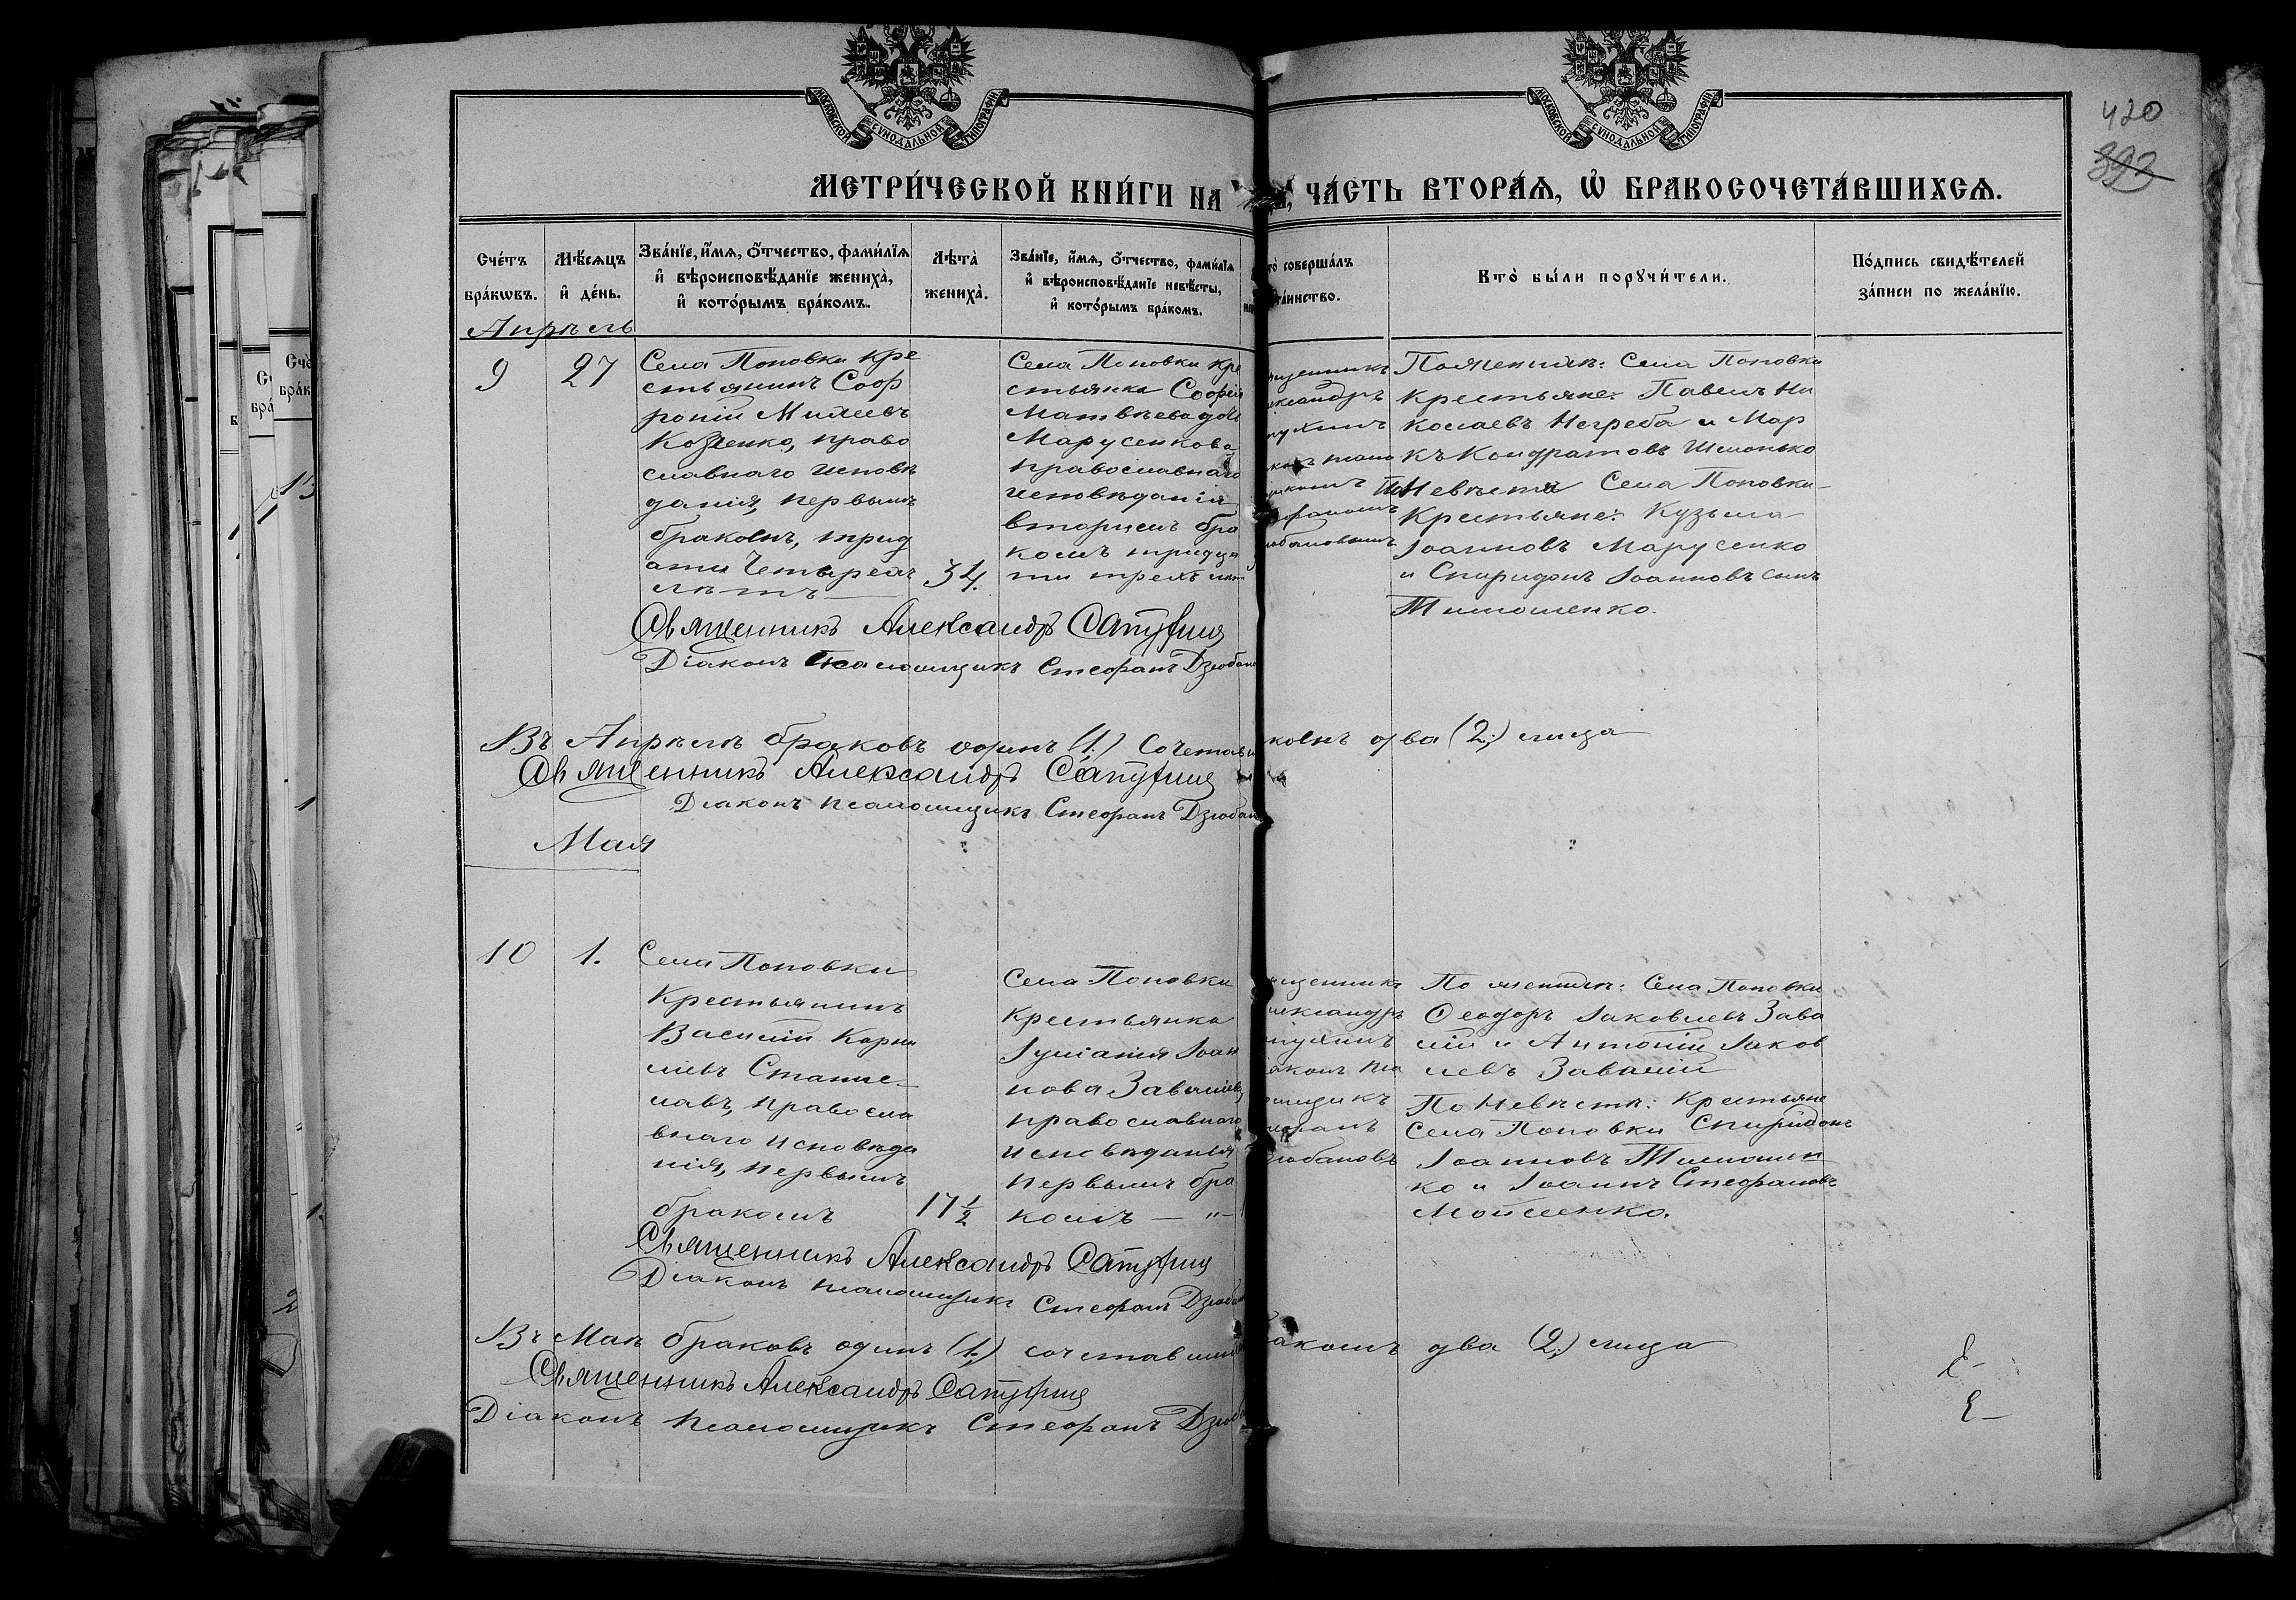 МОСКОВСКОЙ СѴНОДАЛЬНОЙ ТИПОГРАФІИ
МОСКОВСКОЙ СѴНОДАЛЬНОЙ ТИПОГРАФІИ
420
393
МЕТРИ́ЧЕСКОЙ КНИ́ГИ НА
ЧА́СТЬ ВТОРА́Ѧ, Ѡ҆ БРАКОСОЧЕТА́ВШИХСѦ.
Сче́тъ бра́кѡвъ.
Мѣ́сѧцъ и҆ де́нь.
Зва́нїе, и҆́мѧ, о҆́тчество, фами́лїѧ
и҆ вѣроисповѣ́данїе жениха̀,
и҆ кото́рымъ бра́комъ.
Лѣта̀ жениха̀.
Зва́нїе, и҆́мѧ, о҆́тчество, фами́лїѧ
и҆ вѣроисповѣ́данїе невѣ́сты,
и҆ кото́рымъ бра́комъ.
то̀ соверша́лъ
та́инство.
Кто̀ бы́ли порꙋчи́тели.
По́дпись свидѣ́телей
за́писи по жела́нїю.
Апрѣль
9
27
Села Поповки кре
стьянинъ Соф
роній
Козленко, право
славнаго исповѣ
данія, первымъ
бракомъ, трид
ати четырехъ
лѣтъ
34.
Села Поповки кре
стьянка Софія
Матвѣева дочь
Марусенкова
православнаго
исповѣданія
вторымъ бра
комъ тридца
ти трехъ лѣт
щенникъ
лександръ
пухинъ
Стефаномъ
Дзюбановымъ
По женихѣ: Села Поповки
крестьяне: Павелъ Ни
колаевъ Негреба и Мар
къ Кондратовъ Шсполько
Невѣсты Села Поповки
крестьяне: Кузьма
Іоанновъ Марусенко
и Спиридонъ Іоанновъ сынъ
Тимошенко.
Священникъ Александръ Сапухинъ
Діаконъ псаломщикъ Стефанъ Дзюбано
Въ Апрѣлѣ браковъ одинъ (1.) Сочетавш
комъ два (2;) лица
Священникъ Александръ Сапухинъ
Діаконъ псаломщикъ Стефанъ Дзюбан
Мая
10
1.
Села Поповки
Крестьянинъ
Василій Корни
ліевъ Стапие-
лавъ, православ
внаго исповѣда
нія, первымъ
бракомъ
17 1/2
Села Поповки
крестьянка
Іуліанія Іоан
нова Заваліева
православнаго
исповѣданія
первымъ бра
комъ — „ —
щенникъ
лександръ
пухинъ
іаконъ пса
омщикъ
тефанъ
Дзюбановъ
По женихѣ: Села Поповки
Ѳеодоръ Іаковлевъ Зава
лій и Антоній Іаков
левъ Завалій
По Невѣстѣ: Крестьяне
Села Поповки Спиридонъ
Іоанновъ Тимошен
ко и Іоаннъ Стефановъ
Мойсенко.
Священникъ Александръ Сапухинъ
Діаконъ псаломщикъ Стефанъ Дзюба
Въ Маѣ браковъ одинъ (1.) сочетавши
акомъ два (2;) лица
Священникъ Александръ Сапухинъ
Діаконъ псаломщикъ Стефанъ Дзюб